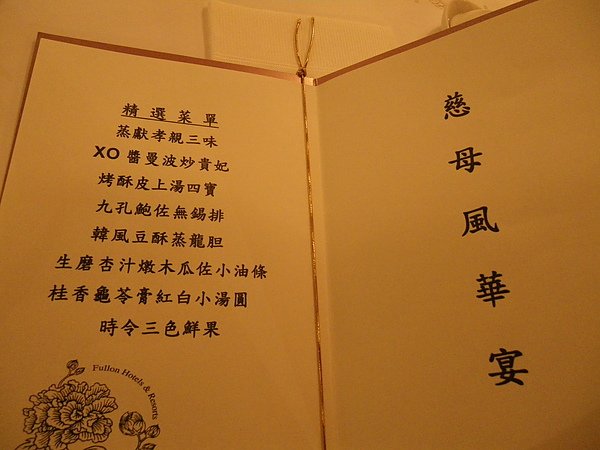 精選菜單
蒸獻孝親三味
XO 醬曼波炒貴妃
烤酥皮上湯四寶
九孔鮑佐無錫排
韓風豆酥蒸龍胆
生磨杏汁燉木瓜佐小油條
桂香龜苓膏紅白小湯圓
時令三色鮮果
Fullon Hotels & Resorts
慈母風華宴